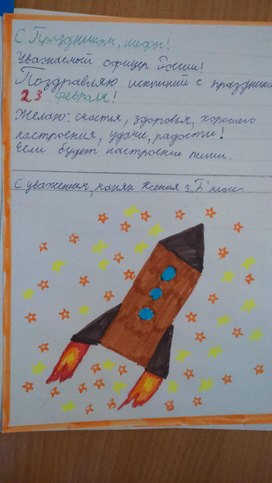 С Праздником,
Уважаемый офицер России!
Поздравляю с праздник
23 февраля!
Желаю: счастья, здоровья, хорошего
настроения, удачи, радости!
Если будет настроение пиши.
С уважением, Ксения 3 "Б" класс